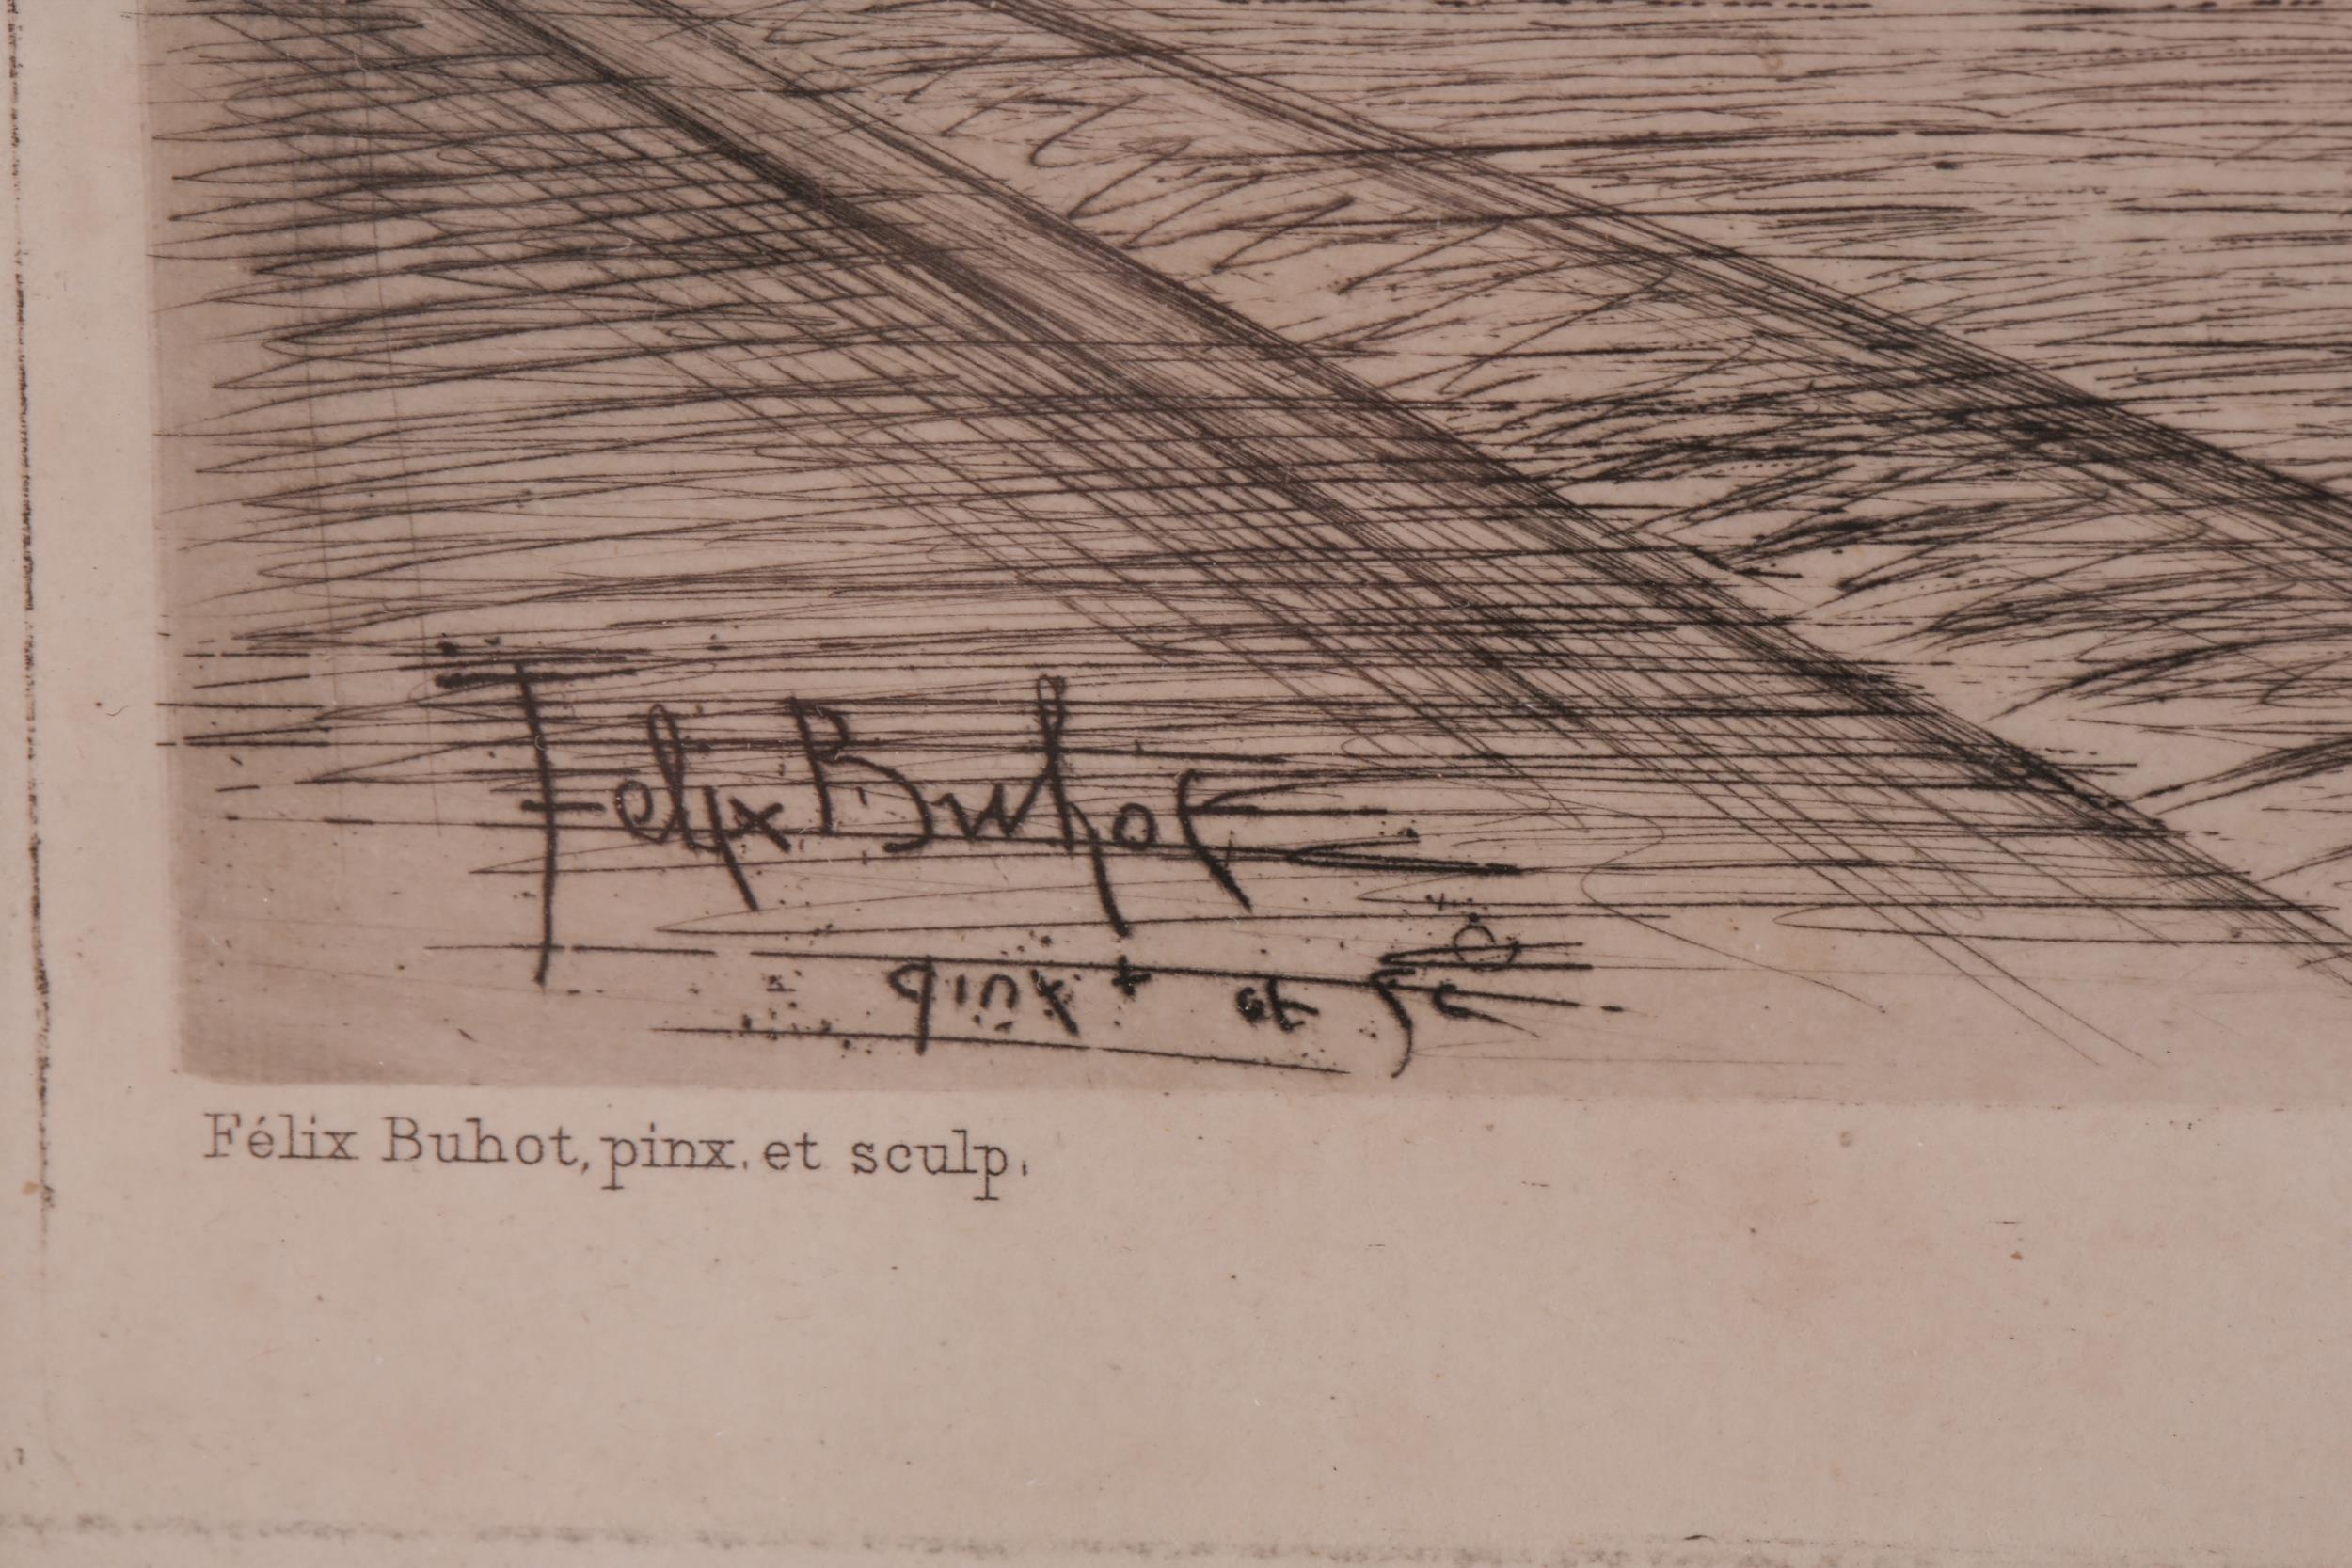 Felix Buhot
pinxt et fc
Félix Buhot, pinx. et sculp.